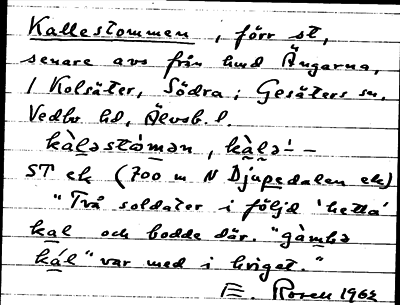 Kallestommen, förr st,
senare avs från hmd Ängarna,
1 Kolsäter, Södra; Gesäters sn,
Vedbo hd, Älvsb. l.
kàləstòmən, kàlə´-
ST ek (700 m N Djupedalen ek)
"Två soldater i följd 'hetta'
kal och bodde där. "gàmlə
kál" var med i kriget."
E. Rosell 1962